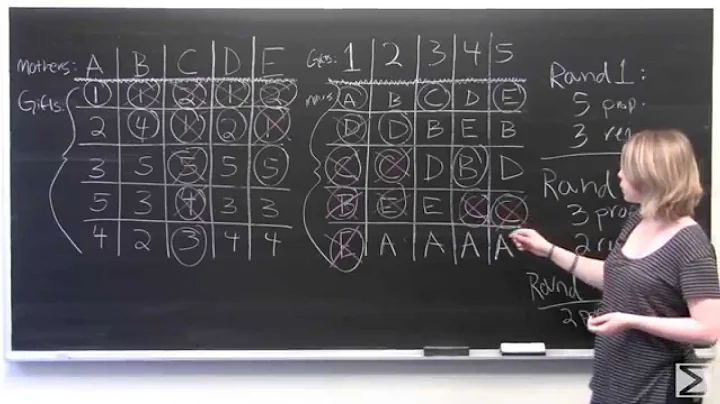 Mothers: A B C D E
Gifts: 1 1 2 1 2
2 4 1 2 1
3 5 5 5 5
5 3 4 3 3
4 2 3 4 4
Gifts: 1 2 3 4 5
A B C D E
D D B E B
C C D B D
B E E C C
E A A A A
Round 1:
5 prop.
3 rej.
Round
3 prop
2
Round
2 prop
Σ